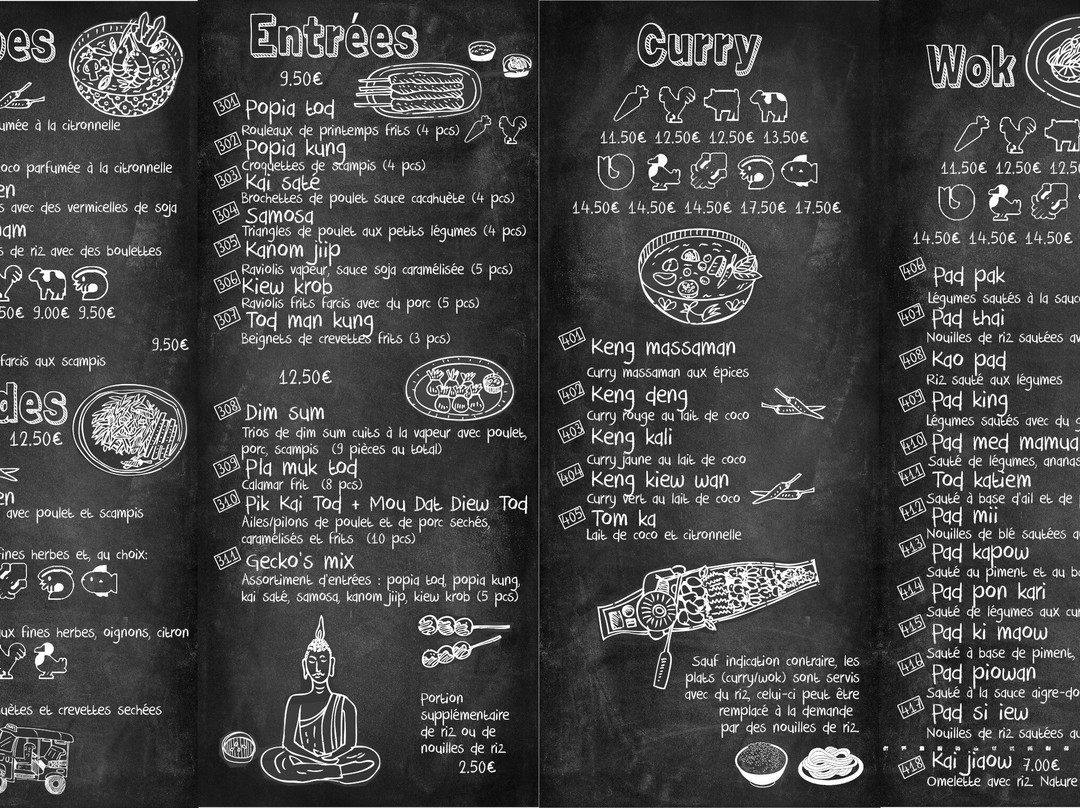 9.00€ 9.50€
9.50€
farcis aux scampis
12.50€
avec poulet et scampis
fines herbes et, au choix:
aux fines herbes, oignons, citron
et crevettes sechées
parfumée à la citronnelle
avec des vermicelles de soja
de riz avec des boulettes
Entrées
9.50€
301 Popia tod
Rouleaux de printemps frits (4 pcs)
302 Popia kung
Croquettes de scampis (4 pcs)
303 Kai saté
Brochettes de poulet sauce cacahuète (4 pcs)
304 Samosa
Triangles de poulet aux petits légumes (4 pcs)
305 Kanom jiip
Raviolis vapeur, sauce soja caramélisée (5 pcs)
306 Kiew krob
Raviolis frits farcis avec du porc (5 pcs)
307 Tod man kung
Beignets de crevettes frits (3 pcs)
12.50€
308 Dim sum
Trios de dim sum cuits à la vapeur avec poulet,
porc, scampis (9 pièces au total)
309 Pla muk tod
Calamar frit (8 pcs)
310 Pik Kai Tod + Mou Dat Diew Tod
Ailes/pilons de poulet et de porc sechés,
caramélisés et frits (10 pcs)
311 Gecko's mix
Assortiment d'entrées : popia tod, popia kung,
kai saté, samosa, kanom jiip, kiew krob (5 pcs)
Portion
supplémentaire
de riz ou de
nouilles de riz
2.50€
Curry
11.50€ 12.50€ 12.50€ 13.50€
14.50€ 14.50€ 14.50€ 17.50€ 17.50€
401 Keng massaman
Curry massaman aux épices
402 Keng deng
Curry rouge au lait de coco
403 Keng kali
Curry jaune au lait de coco
404 Keng kiew wan
Curry vert au lait de coco
405 Tom ka
Lait de coco et citronnelle
Sauf indication contraire, les
plats (curry/wok) sont servis
avec du riz, celui-ci peut être
remplacé à la demande
par des nouilles de riz
Wok
11.50€ 12.50€
14.50€ 14.50€ 14.50€
406 Pad pak
Légumes sautés à la
407 Pad thai
Nouilles de riz sautées
408 Kao pad
Riz sauté aux légumes
409 Pad king
Légumes sautés avec du
410 Pad med
Sauté de légumes,
411 Tod katiem
Sauté à base d'ail et de
412 Pad mii
Nouilles de blé sautées
413 Pad kapow
Sauté au piment et au
414 Pad pon kari
Sauté de légumes aux
415 Pad ki maow
Sauté à base de piment,
416 Pad piowan
Sauté à la sauce
417 Pad si iew
Nouilles de riz sautées
418 Kai jiaow 7.00€
Omelette avec riz Nature